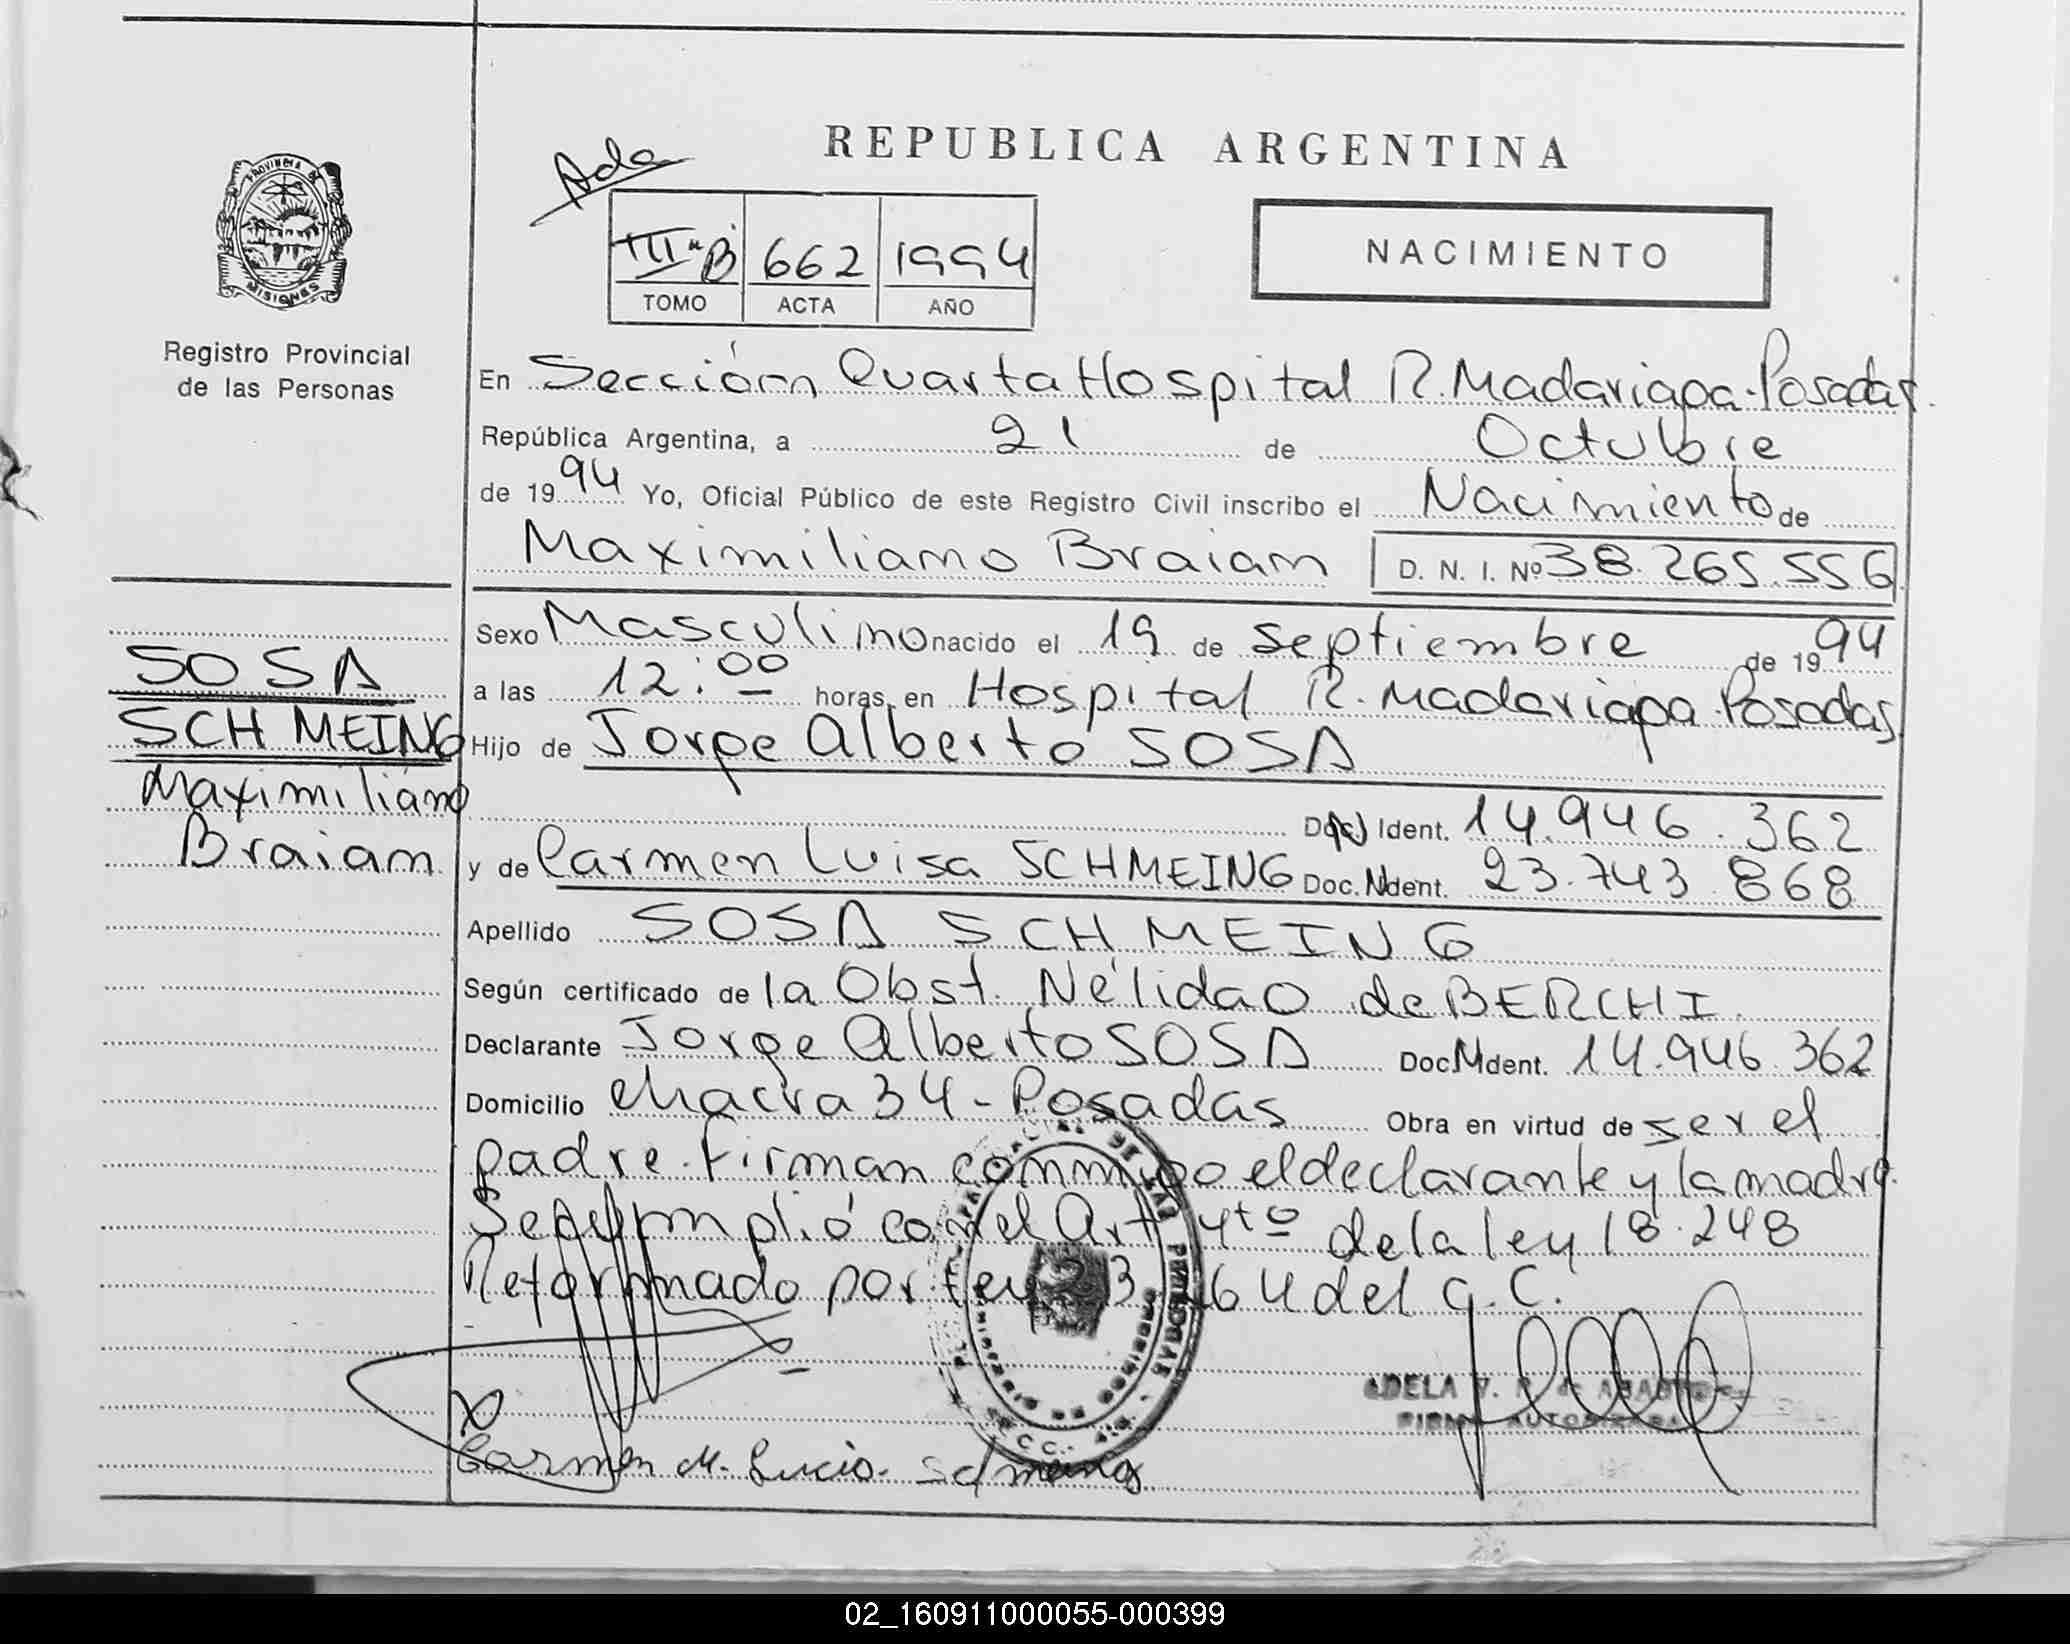 REPUBLICA ARGENTINA
Ada
III "B" 662 1994
TOMO ACTA AÑO
NACIMIENTO
PROVINCIA DE
MISIONES
Registro Provincial
de las Personas
En Sección Quarta Hospital R. Madariaga-Posadas.
República Argentina, a 21 de Octubre
de 1994 Yo, Oficial Público de este Registro Civil inscribo el Nacimiento de
Maximiliano Braian D. N. I. Nº 38.265.556
Sexo Masculino nacido el 19 de Septiembre de 1994
a las 12:00 horas, en Hospital R. Madariaga-Posadas
Hijo de Jorge Alberto SOSA
Doc. Ident. 14.946.362
y de Carmen Luisa SCHMEING Doc. Ident. 23.743.868
Apellido SOSA SCHMEING
Según certificado de la Obst. Nélida O de BERCHI
Declarante Jorge Alberto SOSA Doc. Ident. 14.946.362
Domicilio chacra 34 - Posadas Obra en virtud de ser el
padre. Firman conmigo el declarante y la madre.
Se cumplió con el Art 4to de la ley 18.248
Reformado por ley 23.264 del C.C.
SOSA
SCHMEING
Maximiliano
Braian
ADELA
FIRMA AUTORIZADA
Carmen
02_160911000055-000399